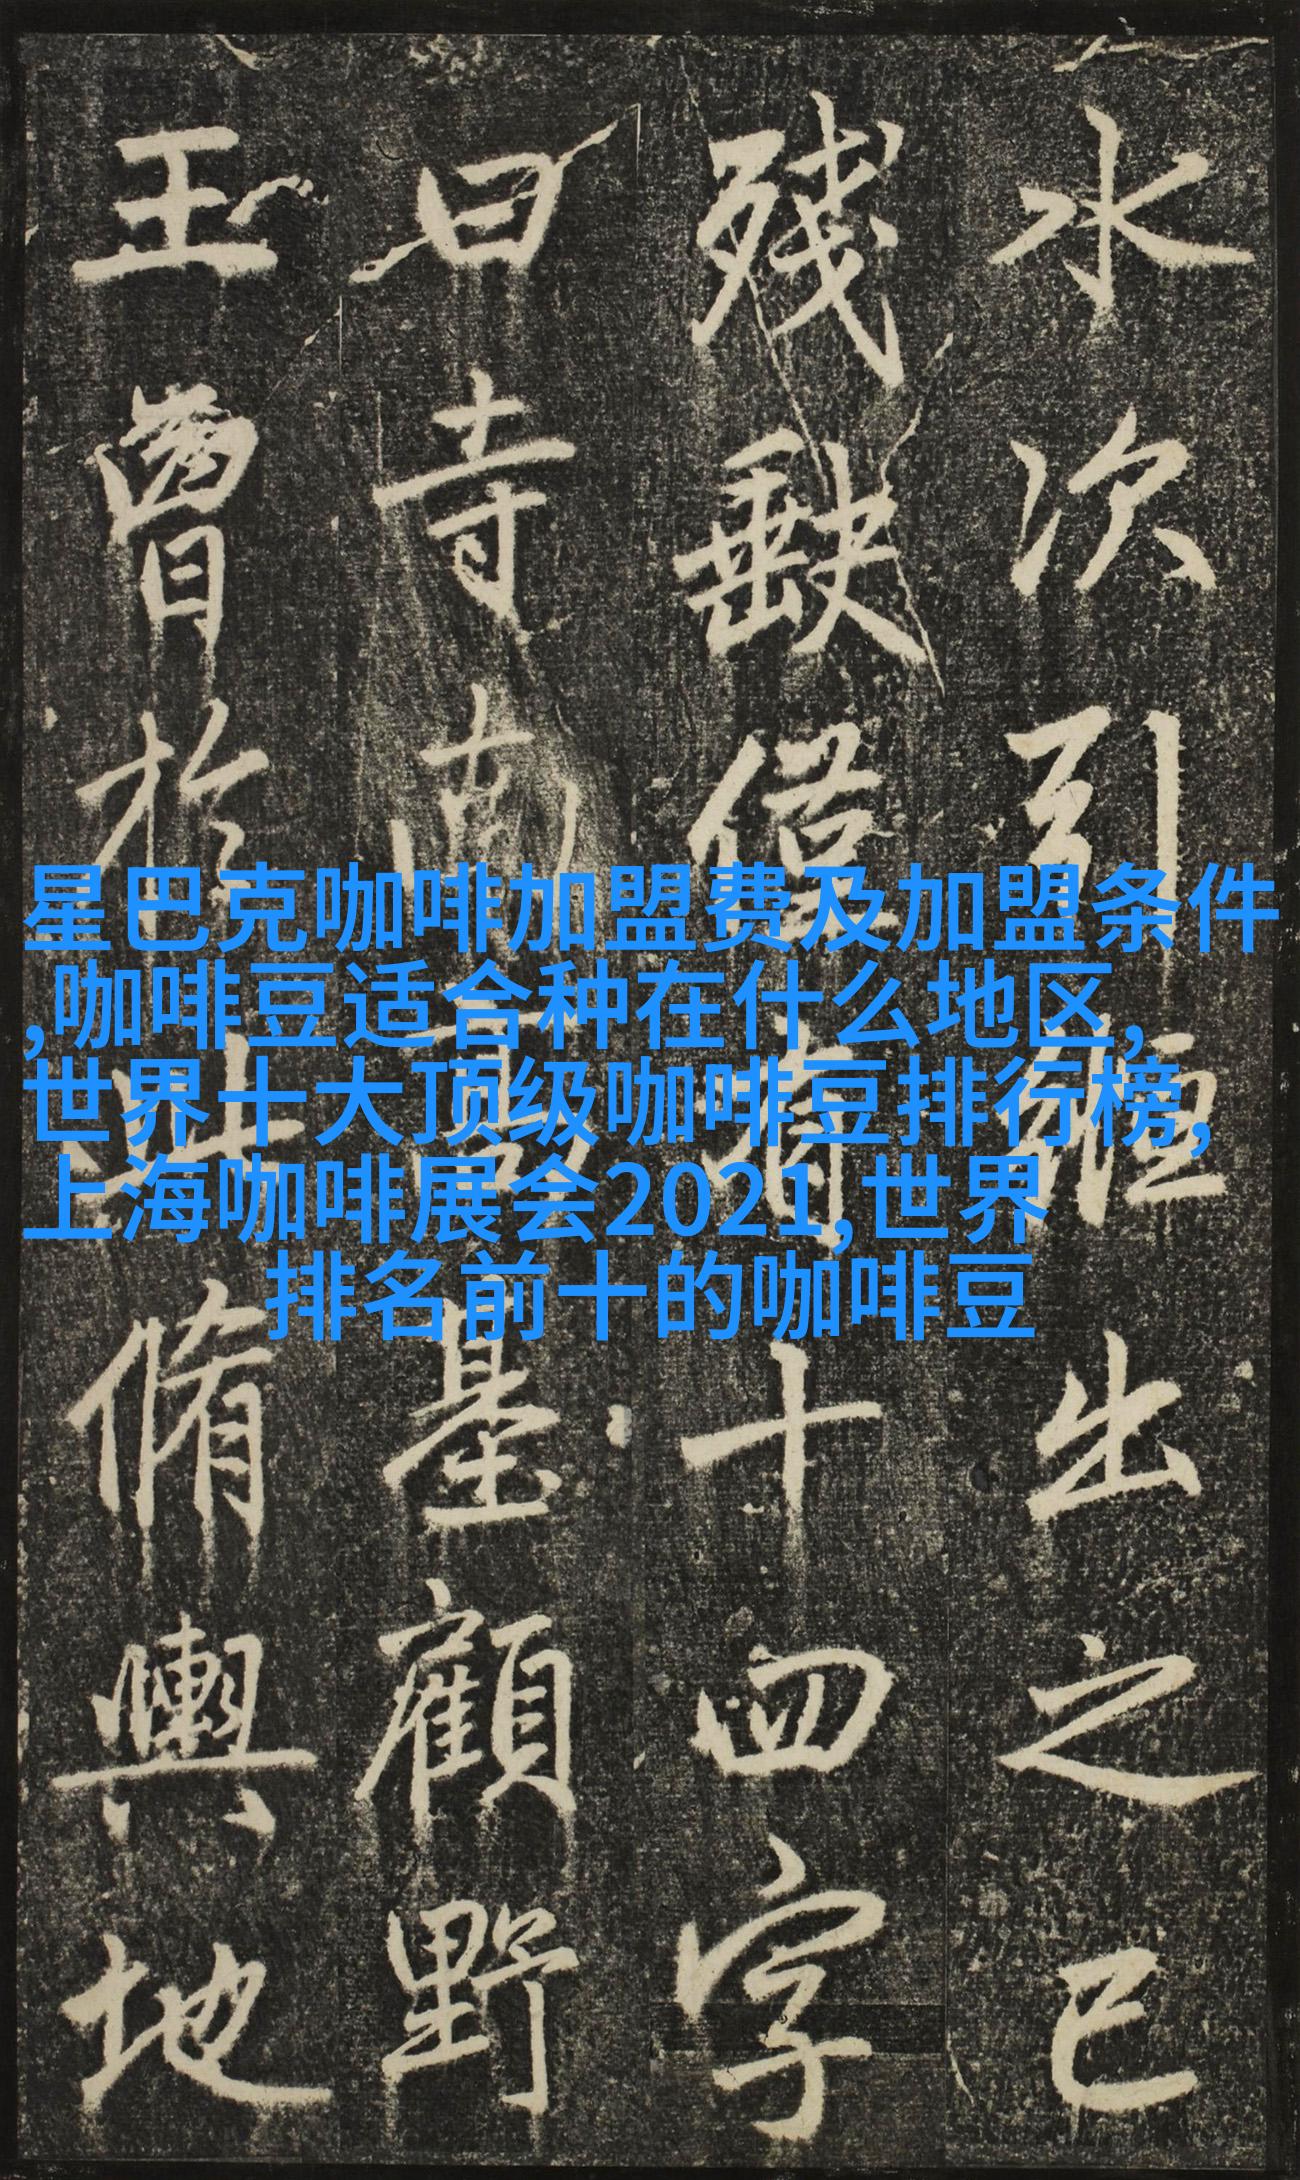 水次引縆出之已
殘缺僅有十四字
曰寺南高基顧野
王曾於此脩輿地
星巴克咖啡加盟费及加盟条件
,咖啡豆适合种在什么地区,
世界十大顶级咖啡豆排行榜,
上海咖啡展会2021,世界
排名前十的咖啡豆